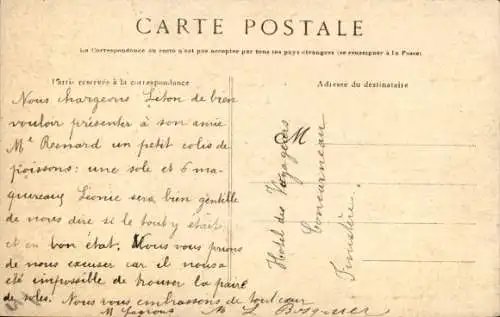 CARTE POSTALE
La Correspondance au recto n'est pas acceptée par tous les pays étrangers (se renseigner à la Poste)
Partie réservée à la correspondance
Adresse du destinataire
Nous chargeons Léton de bien
vouloir présenter à son amie
Mle Renard un petit colis de
poissons : une sole et 6 ma-
quereaux Léonie sera bien gentille
de nous dire si le tout y était
et en bon état. Nous vous prions
de nous excuser car il nous a
été impossible de trouver la paire
de soles. Nous vous embrassons de tout cœur
M
Hotel des Voyageurs
Concarneau
Finistère.